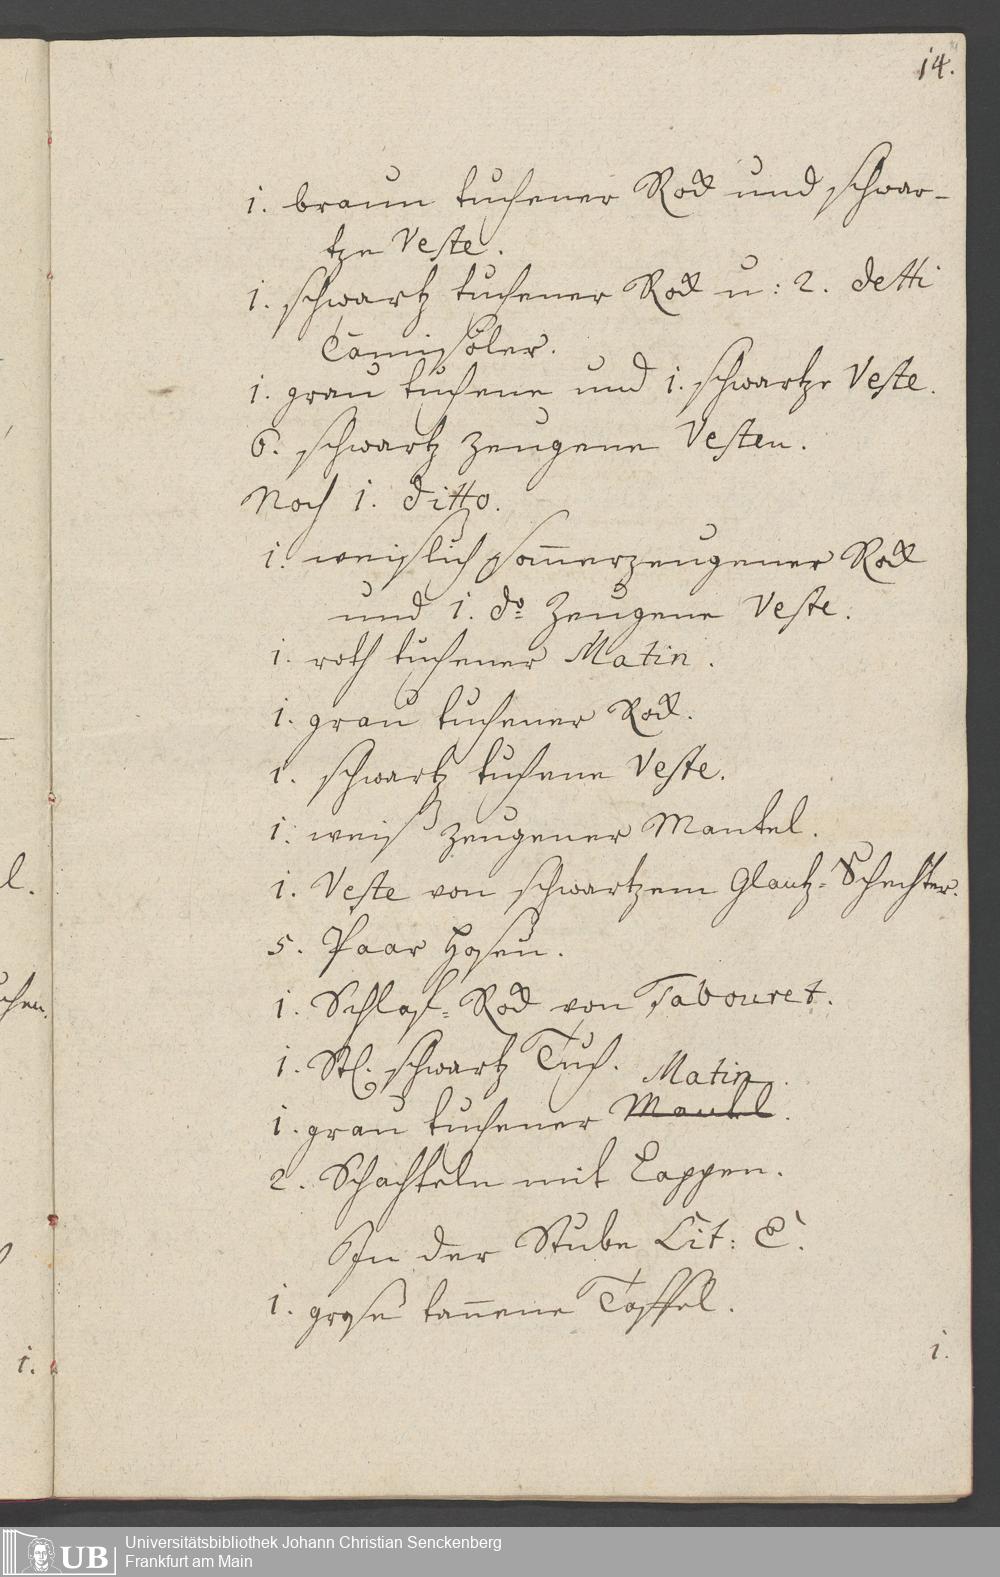 14.
1. braun tuchener Rock und schwar-
tze Veste.
1. schwartz tuchener Rock u: 2. detti
Camisöler.
1. grau tuchene und 1. schwartze Veste.
6. schwartz zeugene Vesten.
Noch 1. ditto.
1. weißlich som̄erzeugener Rock
und 1. do. Zeugene Veste.
1. roth tuchener Matin.
1. grau tuchener Rock.
1. schwartz tuchene Veste.
1. weiß zeugener Mantel.
1. Veste von schwartzem Glantz-Schechter.
5. Paar Hosen.
1. Schlaf-Rock von Tabouret.
1. Stl. schwartz Tuch.
Matin.
1. grau tuchener Mantel.
2. Schachteln mit Lappen.
In der Stube Lit: C.
1. grose tan̄ene Taffel.
1.
l.
uchen.
1.
UB
Universitätsbibliothek Johann Christian Senckenberg
Frankfurt am Main